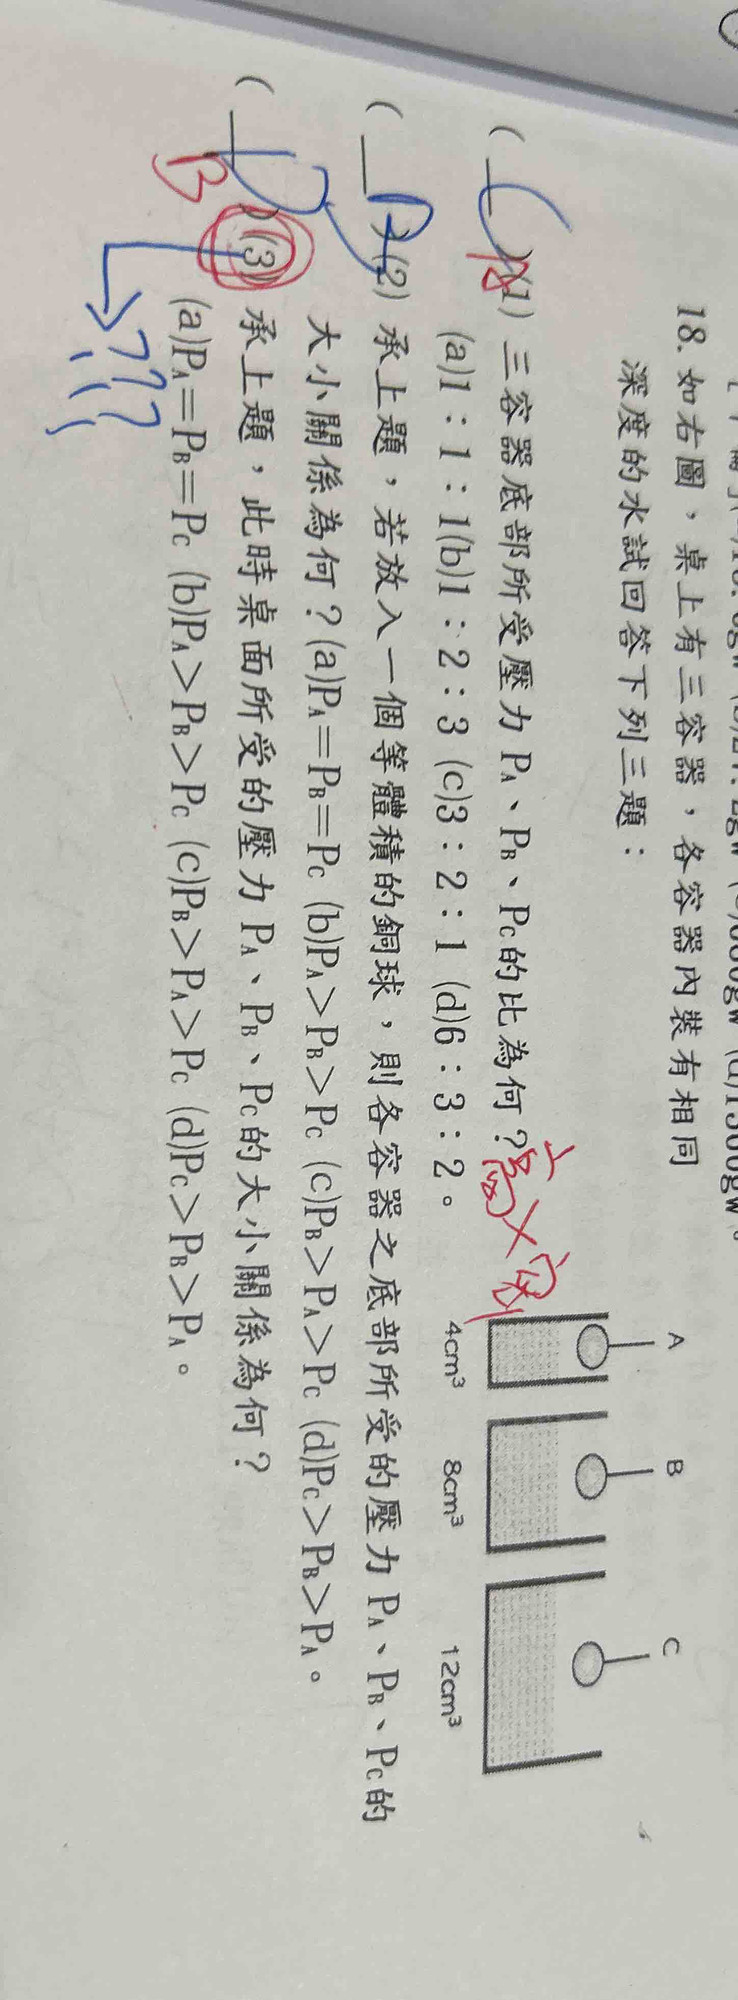 18. 如右圖，桌上有三容器，各容器內裝有相同
深度的水試回答下列三題：
(1) 三容器底部所受壓力 PA、PB、PC的比為何？
(a)1：1：1(b)1：2：3 (c)3：2：1 (d)6：3：2。
(2) 承上題，若放入一個等體積的銅球，則各容器之底部所受的壓力 PA、PB、PC的
大小關係為何？(a)PA＝PB＝PC (b)PA＞PB＞PC (c)PB＞PA＞PC (d)PC＞PB＞PA。
D
(3) 承上題，此時桌面所受的壓力 PA、PB、PC的大小關係為何？
B
(a)PA＝PB＝PC (b)PA＞PB＞PC (c)PB＞PA＞PC (d)PC＞PB＞PA。
???
高×密
A
B
C
4cm³
8cm³
12cm³